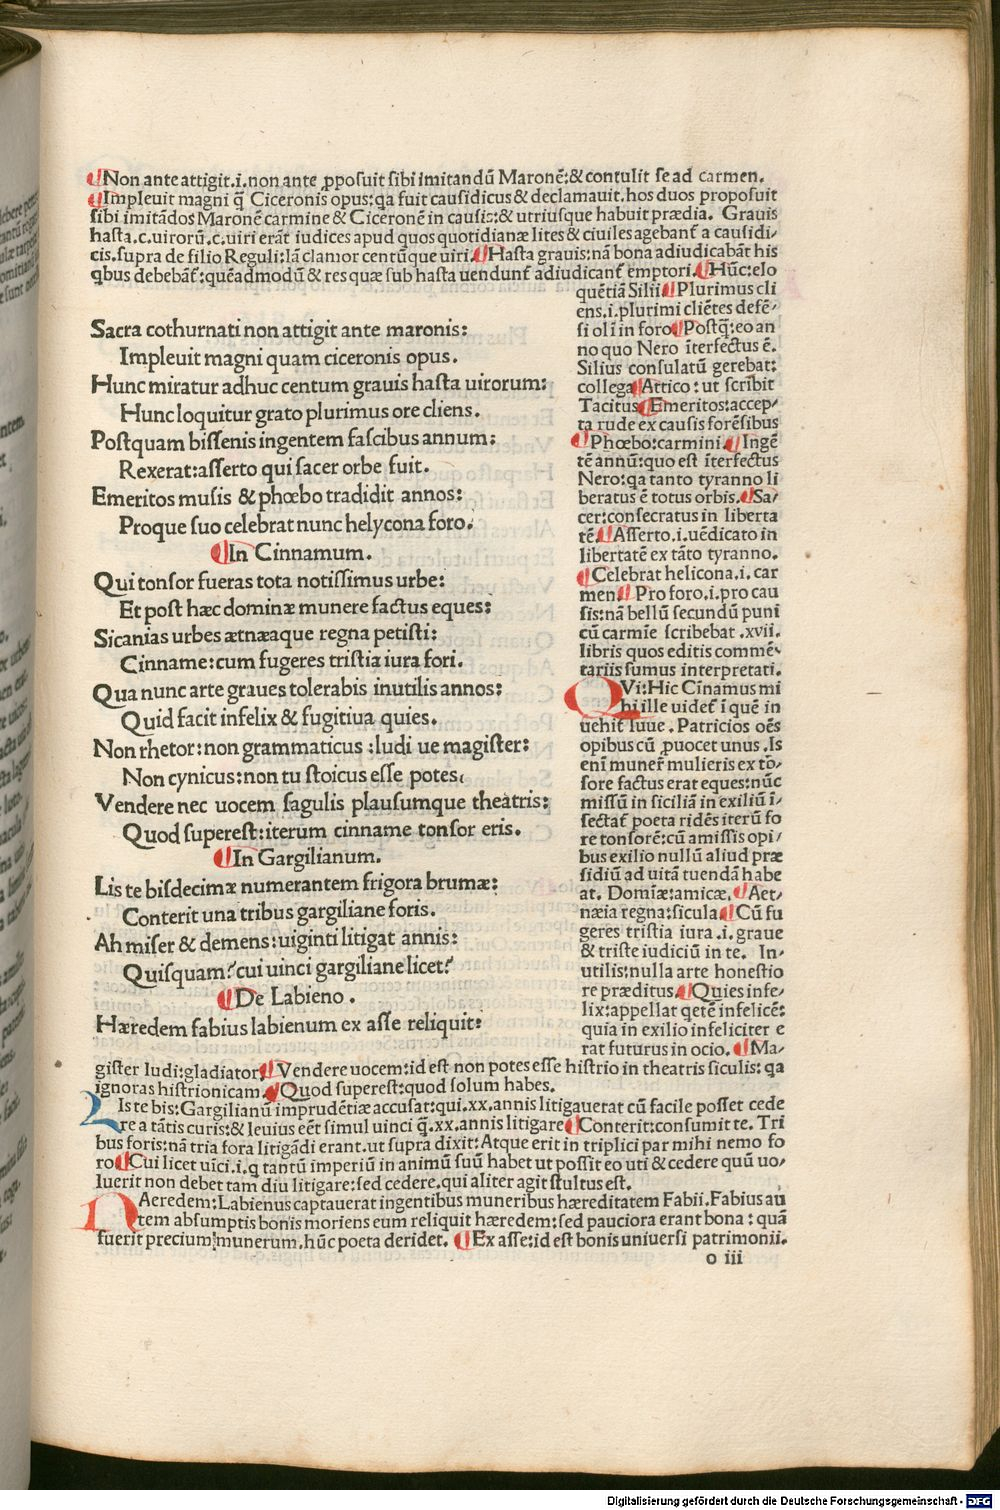 ¶Non ante attigit.i.non ante ꝓposuit sibi imitandū Maronē:& contulit se ad carmen.
¶Impleuit magni q̄ Ciceronis opus:qa fuit causidicus & declamauit.hos duos proposuit
sibi imitādos Maronē carmine & Ciceronē in causis:& utriusque habuit prædia. Grauis
hasta.c.uirorū.c.uiri erāt iudices apud quos quotidianæ lites & ciuiles agebant̄ a causidi/
cis.supra de filio Reguli:lā clamor centūque uiri.¶Hasta grauis:nā bona adiudicabāt his
qbus debebāt̄:quēadmodū & res quæ sub hasta uendunt̄ adiudicant̄ emptori.¶Hūc:elo
quētiā Silii¶Plurimus cli
ens.i.plurimi cliētes defē/
si oli in foro¶Postq̄:eo an
no quo Nero īterfectus ē.
Silius consulatū gerebat:
collega Attico:ut scribit
Tacitus¶Emeritos:accep/
ta rude ex causis forēsibus
¶Phœbo:carmini.¶Ingē
tē annū:quo est īterfectus
Nero:qa tanto tyranno li
beratus ē totus orbis.¶Sa/
cer:consecratus in liberta
tē.¶Asserto.i.uēdicato in
libertatē ex tāto tyranno.
¶Celebrat helicona.i.car
men¶Pro foro.i.pro cau
sis:nā bellū secundū puni
cū carmīe scribebat.xvii.
libris quos editis commē/
tariis sumus interpretati.
Sacra cothurnati non attigit ante maronis:
Impleuit magni quam ciceronis opus.
Hunc miratur adhuc centum grauis hasta uirorum:
Hunc loquitur grato plurimus ore cliens.
Postquam bissenis ingentem fascibus annum:
Rexerat:asserto qui sacer orbe fuit.
Emeritos musis & phœbo tradidit annos:
Proque suo celebrat nunc helycona foro.
¶In Cinnamum.
Qui tonsor fueras tota notissimus urbe:
Et post hæc dominæ munere factus eques:
Sicanias urbes ætnæaque regna petisti:
Cinname:cum fugeres tristia iura fori.
Qua nunc arte graues tolerabis inutilis annos:
Quid facit infelix & fugitiua quies.
Non rhetor:non grammaticus:ludi ue magister:
Non cynicus:non tu stoicus esse potes.
Vendere nec uocem sagulis plausumque theatris:
Quod superest:iterum cinname tonsor eris.
¶In Gargilianum.
Lis te bisdecimæ numerantem frigora brumæ:
Conterit una tribus gargiliane foris.
Ah miser & demens:uiginti litigat annis:
Quisquam?cui uinci gargiliane licet?
¶De Labieno.
Hæredem fabius labienum ex asse reliquit:
QVi:Hic Cinamus mi
hi ille uidet̄ ī quē in
uehit Iuue. Patricios oēs
opibus cū ꝓuocet unus. Is
enī muner̄ mulieris ex tō/
sore factus erat eques:nūc
missū in siciliā in exiliū ī/
sectat̄ poeta ridēs iterū fo
re tonsorē:cū amissis opi/
bus exilio nullū aliud præ
sidiū ad uitā tuendā habe
at. Domīæ:amicæ.¶Aet/
næia regna:sicula¶Cū fu
geres tristia iura.i.graue
& triste iudiciū in te. In/
utilis:nulla arte honestio
re præditus.¶Quies infe/
lix:appellat qetē infelicē:
quia in exilio infeliciter e
rat futurus in ocio. ¶Ma/
gister ludi:gladiator¶Vendere uocem:id est non potes esse histrio in theatris siculis: qa
ignoras histrionicam.¶Quod superest:quod solum habes.
LIs te bis:Gargilianū imprudētiæ accusat:qui.xx.annis litigauerat cū facile posset cede
re a tātis curis:& leuius eēt simul uinci q̄.xx.annis litigare¶Conterit:consumit te. Tri
bus foris:nā tria fora litigādi erant.ut supra dixit:Atque erit in triplici par mihi nemo fo
ro¶Cui licet uīci.i.q tantū imperiū in animū suū habet ut possit eo uti & cedere quū uo/
luerit non debet tam diu litigare:sed cedere.qui aliter agit stultus est.
HAeredem:Labienus captauerat ingentibus muneribus hæreditatem Fabii.Fabius au
tem absumptis bonis moriens eum reliquit hæredem:sed pauciora erant bona: quā
fuerit precium munerum.hūc poeta deridet. ¶Ex asse:id est bonis uniuersi patrimonii.
o iii
Digitalisierung gefördert durch die Deutsche Forschungsgemeinschaft - DFG